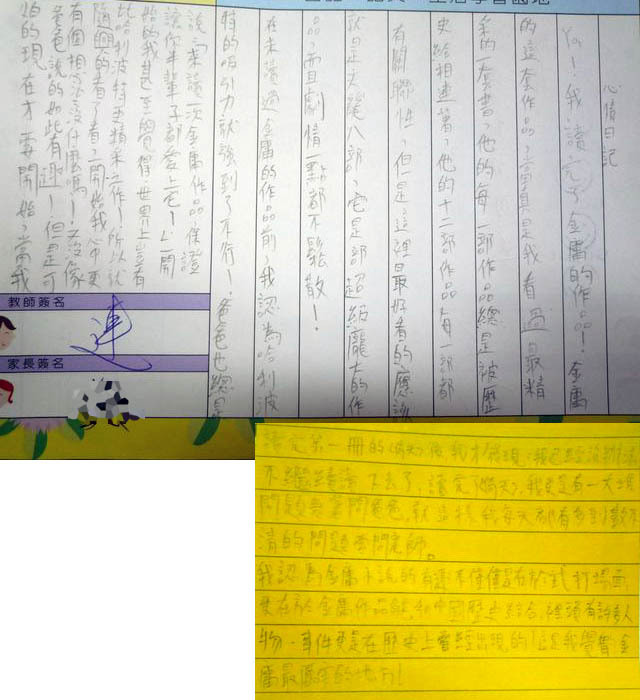 心情日記
Ya!我讀完了金庸的作品!金庸
的這套作品,當真是我看過最精
采的一套書,他的每一部作品總是被歷
史給相連著,他的十二部作品,每一部都
有關聯性,但是這裡最好看的應該
就是天龍八部,它是部超級龐大的作
品,而且劇情一點都不鬆散!
在未讀過金庸的作品前,我認為哈利波
特的吸引力就強到了不行!爸爸也總是
說「來讀一次金庸作品,保證
讓你半輩子都愛上它!」一開
始的我甚至覺得世界上豈有
比哈利波特更精采之作!所以就
隨興的看了看,一開始我心中更
有個想法沒什麼嗎!沒像
爸爸說的如此有趣!但是可
怕的現在才要開始,當我
教師簽名
連
家長簽名
讀完第一冊的《倚天》後,我才發現,我已經沒辦法
不繼續讀下去了,讀完《倚天》,我更是有一大堆
問題要問爸爸,就這樣,我每天都有多到數不
清的問題要問老師。
我認為金庸小說的有趣不僅僅是在於武打場面,
更在於金庸作品能和中國歷史結合,裡頭有許多人
物、事件更是在歷史上曾經出現的!這是我覺得金
庸最厲害的地方!